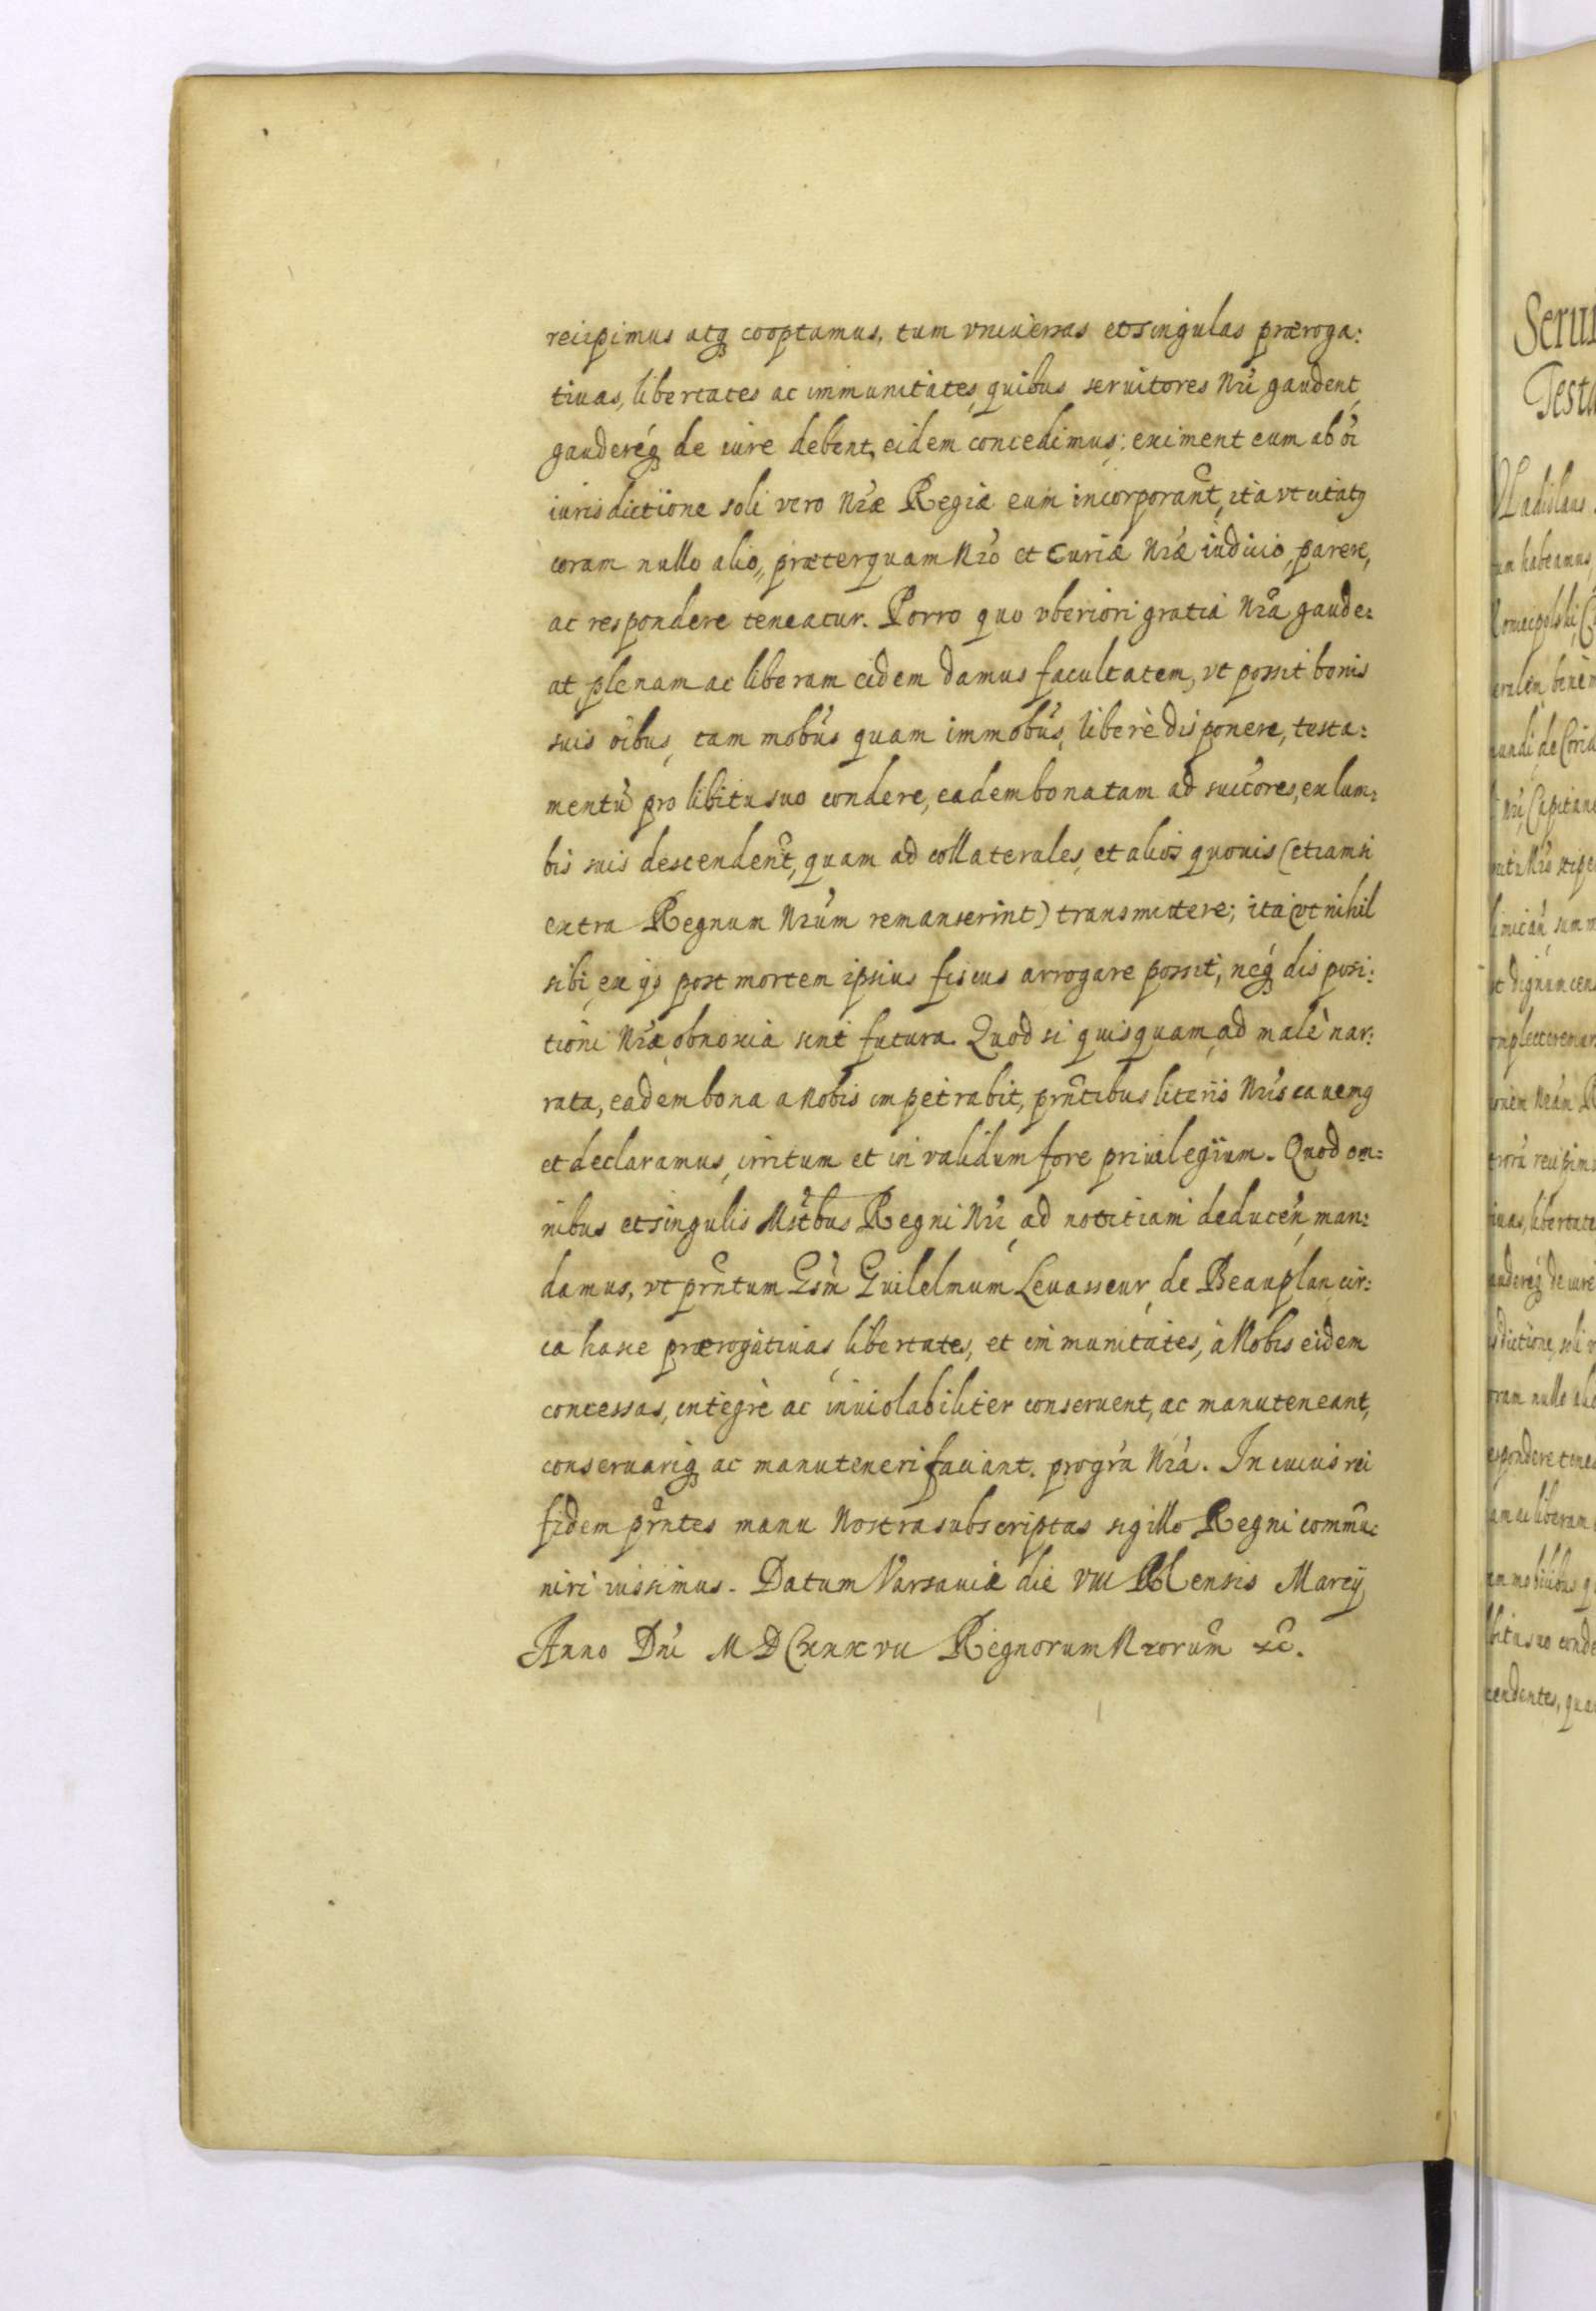 recipimus atq; cooptamus, tum vniuersas et singulas præroga:
tiuas, libertates ac immunitates, quibus seruitores Nri gaudent,
gauderéq; de iure debent, eidem concedimus: eximent eum ab oi
iurisdictione soli vero Nræ Regiæ eum incorporant, ita vt
coram nullo alio, præterquam Nro et Curiæ Nræ iudicio, parere,
ac respondere teneatur. Porro quo vberiori gratiâ Nrâ gaude:
at plenam ac liberam eidem damus facultatem, vt possit bonis
suis oibus, tam mobus quam immobus, liberè disponere, testa:
mentũ pro libitu suo condere, eadem bona tam ad succores, ex lum:
bis suis descendent, quam ad collaterales, et alios quouis (etiamsi
extra Regnum Nrum remanserint) transmittere; ita vt nihil
sibi ex ijs post mortem ipsius fiscus arrogare possit, neq; disposi:
tioni Nræ obnoxia sint futura. Quod si quisquam, ad malè nar:
rata, eadem bona a Nobis impetrabit, prntibus literis Nris cauemq
et declaramus, irritum et inualidum fore priuilegium. Quod om:
nibus et singulis Mstbus Regni Nri, ad notitiam deducen, man:
damus, vt prntum Gsm Guilelmum Leuasseur de Beauplan cir:
ca hasce prærogatiuas, libertates, et immunitates, à Nobis eidem
concessas, integrè ac inuiolabiliter conseruent, ac manuteneant,
conseruariq; ac manuteneri faciant. pro gra Nra. In cuius rei
fidem prntes manu Nostra subscriptas sigillo Regni commu:
niri iussimus. Datum Varsauiæ die VIII Mensis Marcij
Anno Dni MDCXXXVII Regnorum Nrorum &c.
Seru
Testa
VLadislaus
habeamus
Koniecpolski
Capitane
dignum cen
plecteremur
Nram
recipim
libertate
de iure
dictione, soli
nullo
spondere tene
ac liberam
mobilibus
cendentes, qua